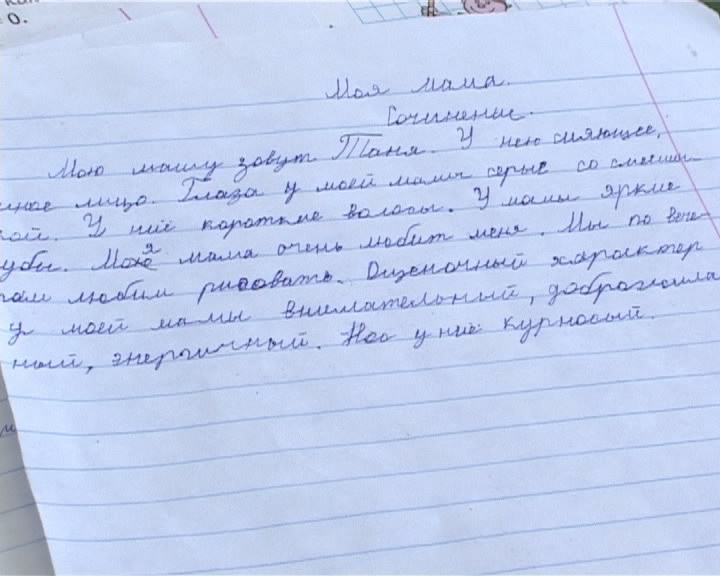 о.
Моя мама.
Сочинение.
Мою маму зовут Таня. У неё сияющее,
лицо. Глаза у моей мамы серые со смешин-
кой. У неё короткие волосы. У мамы яркие
губы. Моя мама очень любит меня. Мы по вече-
рам любим рисовать. Оценочный характер
у моей мамы внимательный, доброжела
ный, энергичный. Нос у неё курносый.